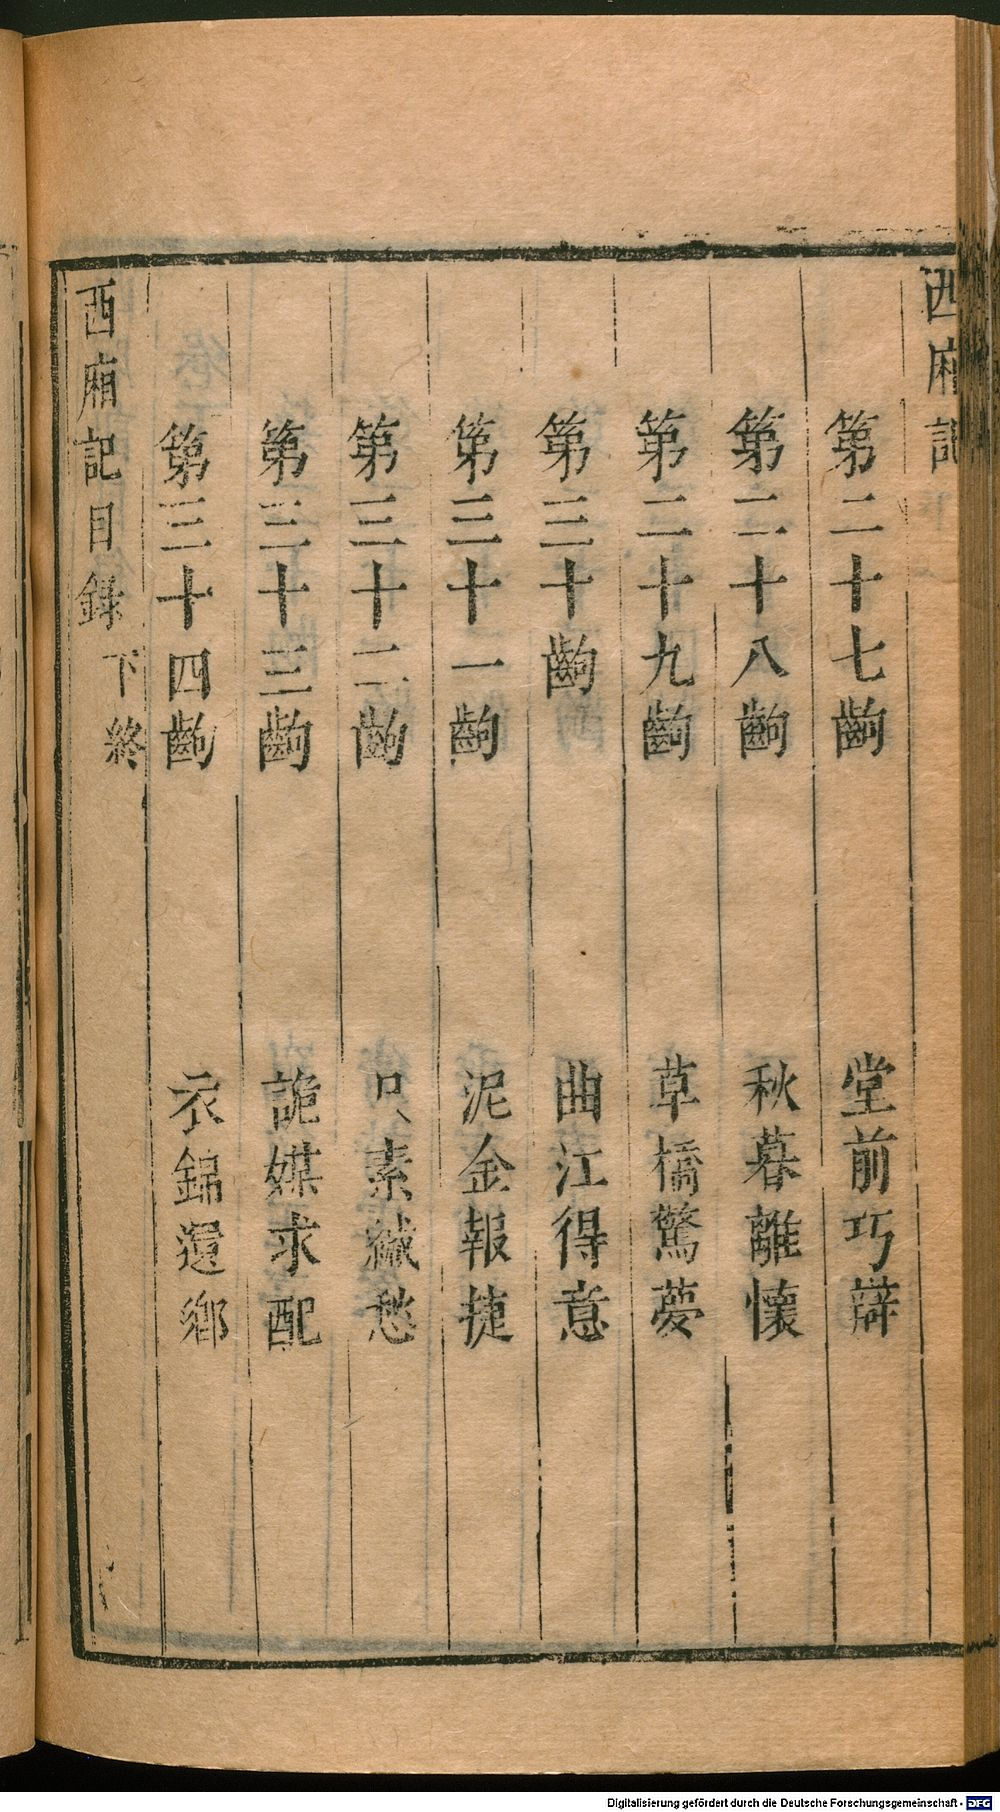 西廂記
第二十七齣　堂前巧辯
第二十八齣　秋暮離懷
第二十九齣　草橋驚夢
第三十齣　曲江得意
第三十一齣　泥金報捷
第三十二齣　尺素緘愁
第三十三齣　詭媒求配
第三十四齣　衣錦還鄉
西廂記目録下終
Digitalisierung gefördert durch die Deutsche Forschungsgemeinschaft - DFG